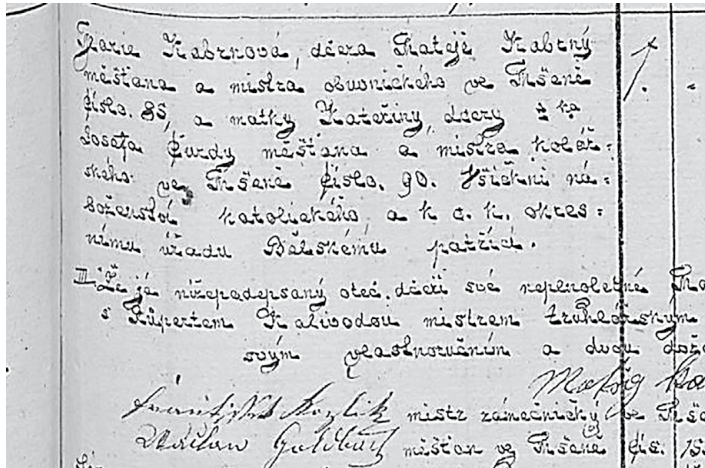 Marie Kabrnová, dcera Matěje Kabrný
měšťana a mistra obuvnického ve Mšeně
číslo. 85, a matky Kateřiny, dcery
Josefa Čurdy měšťana a mistra kolář=
ského ve Mšeně číslo. 90. Všickni ná=
boženství katolického a k c. k. okres=
nímu úřadu Bělskému patřící.
III Že já nížepodepsaný otec, dceři své neplnoleté
s Rupertem Kalivodou mistrem truhlářským
svým vlastnoručním a dvou
Matěj
František Kozlík mistr zámečnický ve
Václav měšťan ve Mšeně čís.